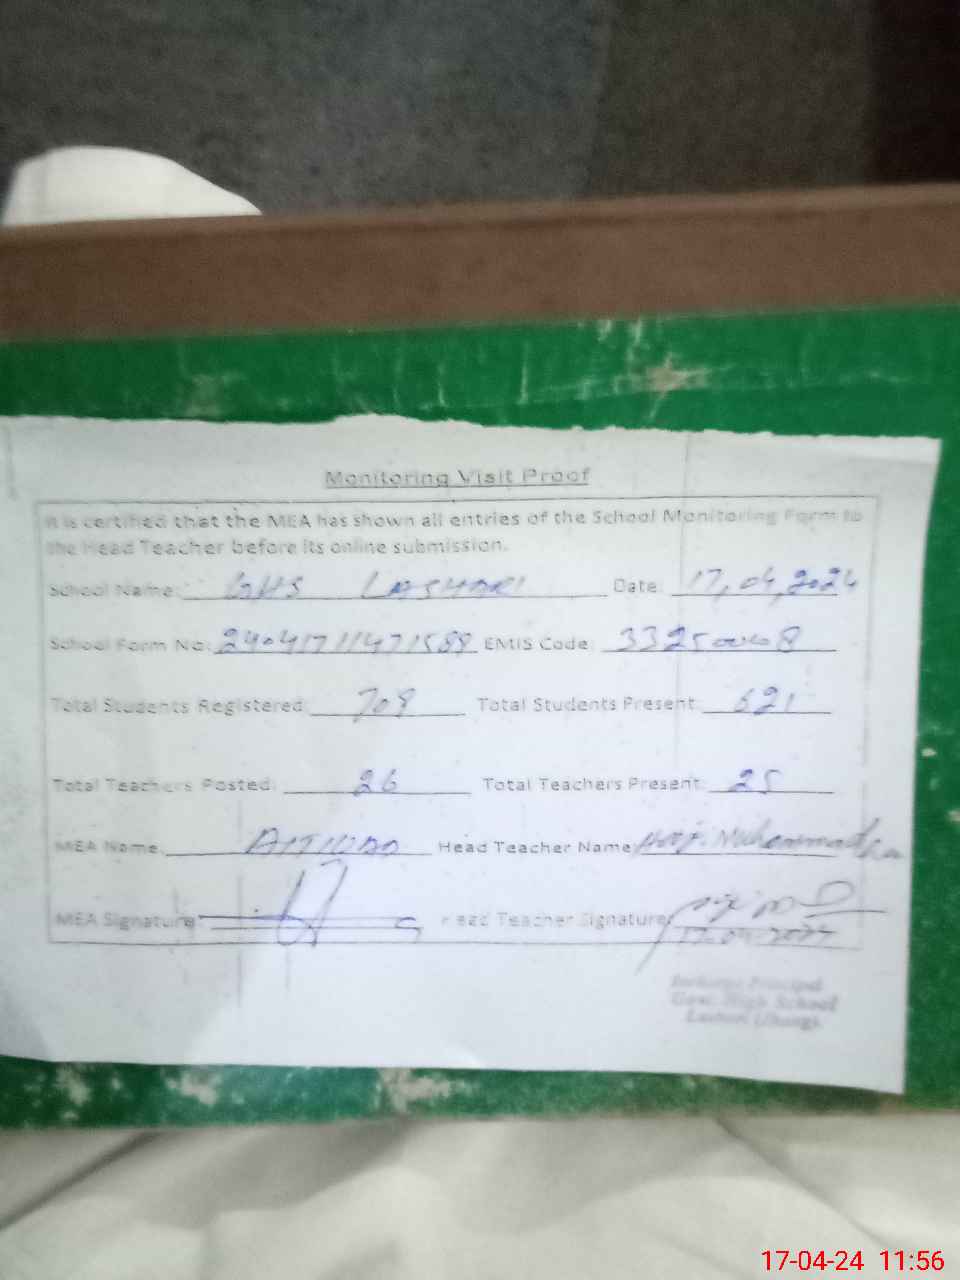 Monitoring Visit Proof
It is certified that the MEA has shown all entries of the School Monitoring Form to
the Head Teacher before its online submission.
School Name: GHS LASHARI Date: 17,04,2024
School Form No: EMIS Code:
Total Students Registered: 709 Total Students Present: 621
Total Teachers Posted: 26 Total Teachers Present: 25
MEA Name Head Teacher Name: Muhammad
MEA Signature: Head Teacher Signature:
17-04-2024
Incharge Principal
Govt. High School
Lashari (Jhang)
17-04-24 11:56